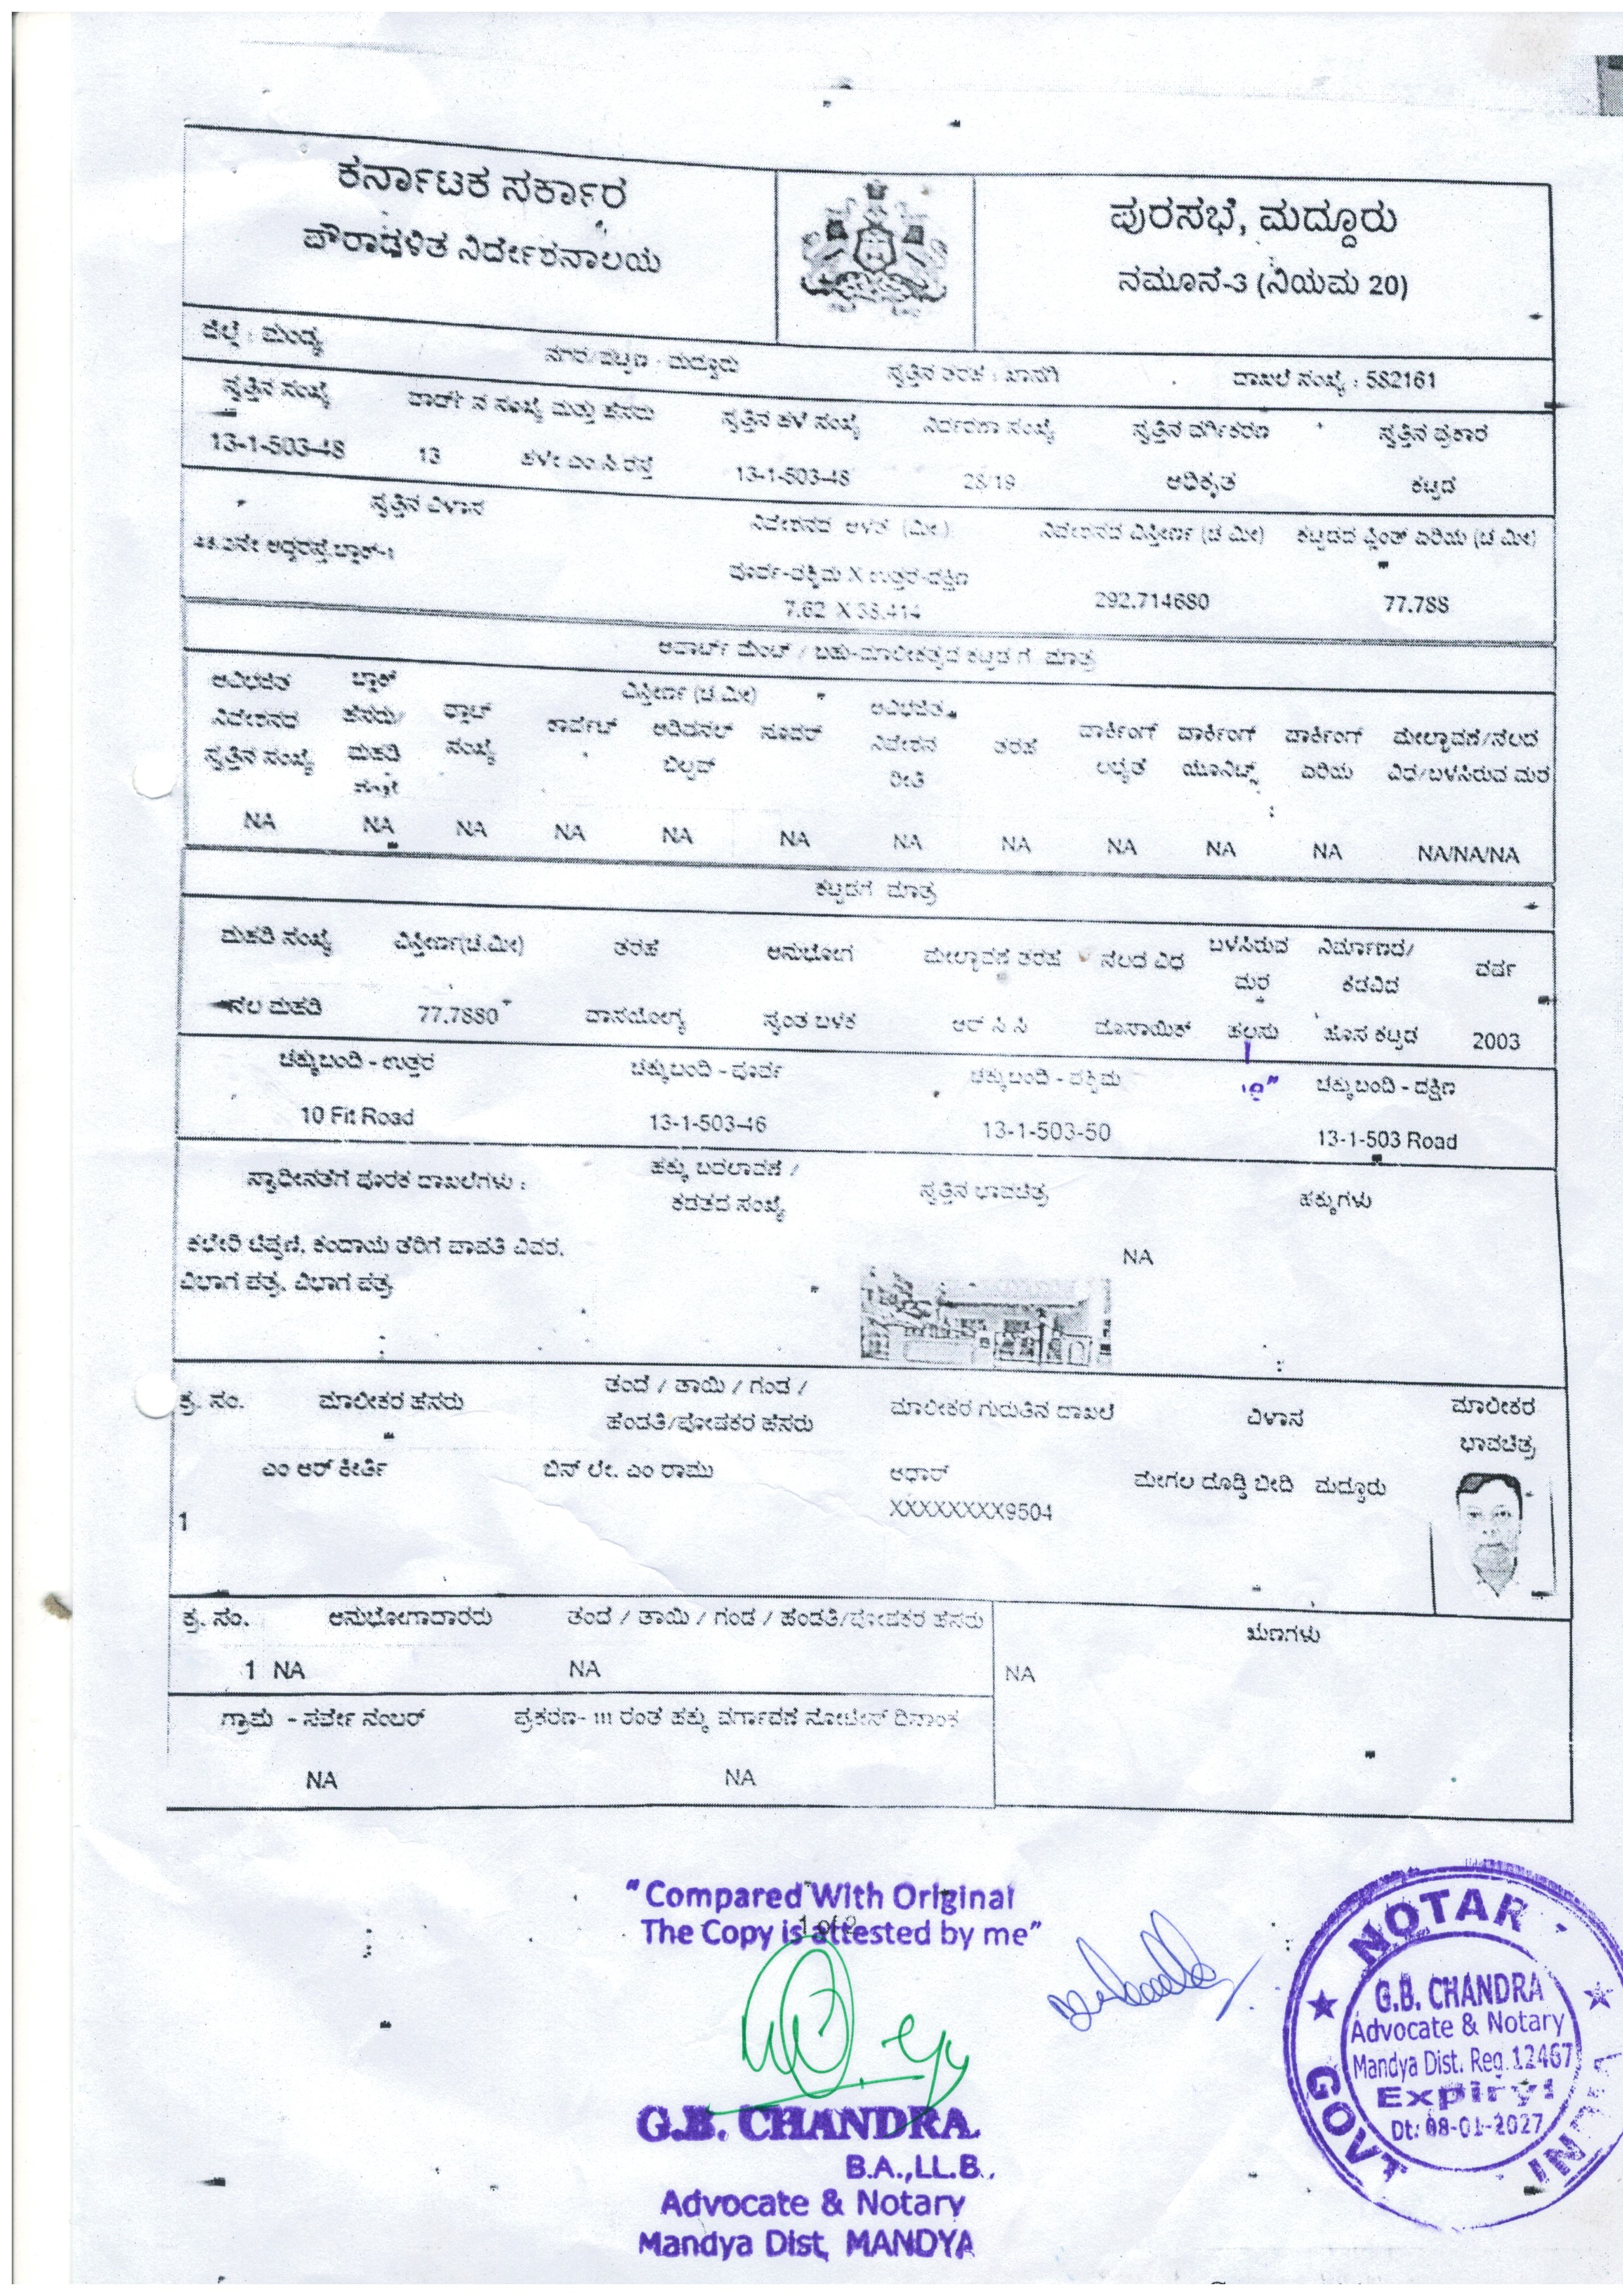 ಕರ್ನಾಟಕ ಸರ್ಕಾರ
ಪೌರಾಡಳಿತ ನಿರ್ದೇಶನಾಲಯ
ಪುರಸಭೆ, ಮದ್ದೂರು
ನಮೂನೆ-3 (ನಿಯಮ 20)
ಜಿಲ್ಲೆ : ಮಂಡ್ಯ ನಗರ/ಪಟ್ಟಣ : ಮದ್ದೂರು ಸ್ವತ್ತಿನ ತರಹ : ಖಾಸಗಿ ದಾಖಲೆ ಸಂಖ್ಯೆ : 582161
ಸ್ವತ್ತಿನ ಸಂಖ್ಯೆ ವಾರ್ಡ್ ನ ಸಂಖ್ಯೆ ಮತ್ತು ಹೆಸರು ಸ್ವತ್ತಿನ ಹಳೆ ಸಂಖ್ಯೆ ನಿರ್ಧರಣಾ ಸಂಖ್ಯೆ ಸ್ವತ್ತಿನ ವರ್ಗೀಕರಣ ಸ್ವತ್ತಿನ ಪ್ರಕಾರ
13-1-503-48 13 ಹಳೇ ಎಂ.ಸಿ.ರಸ್ತೆ 13-1-503-48 28/19 ಅಧಿಕೃತ ಕಟ್ಟಡ
ಸ್ವತ್ತಿನ ವಿಳಾಸ ನಿವೇಶನದ ಅಳತೆ (ಮೀ.) ನಿವೇಶನದ ವಿಸ್ತೀರ್ಣ (ಚ.ಮೀ) ಕಟ್ಟಡದ ಪ್ಲಿಂತ್ ಏರಿಯ (ಚ.ಮೀ)
ಪೂರ್ವ-ಪಶ್ಚಿಮ X ಉತ್ತರ-ದಕ್ಷಿಣ
7.62 X 38.414 292.714680 77.788
ಅಪಾರ್ಟ್ ಮೆಂಟ್ / ಬಹು-ಮಾಲೀಕತ್ವದ ಕಟ್ಟಡ ಗೆ ಮಾತ್ರ
ವಿಸ್ತೀರ್ಣ (ಚ.ಮೀ)
ಅವಿಭಜಿತ ಬ್ಲಾಕ್ ಅವಿಭಜಿತ
ನಿವೇಶನದ ಹೆಸರು/ ಫ್ಲಾಟ್ ಕಾರ್ಪೆಟ್ ಅಡಿಷನಲ್ ಸೂಪರ್ ನಿವೇಶನ ತರಹ ಪಾರ್ಕಿಂಗ್ ಪಾರ್ಕಿಂಗ್ ಪಾರ್ಕಿಂಗ್ ಮೇಲ್ಛಾವಣಿ/ನೆಲದ
ಸ್ವತ್ತಿನ ಸಂಖ್ಯೆ ಮಹಡಿ ಸಂಖ್ಯೆ ಬಿಲ್ಟಪ್ ರೀತಿ ಲಭ್ಯತೆ ಯೂನಿಟ್ಸ್ ಏರಿಯ ವಿಧ/ಬಳಸಿರುವ ಮರ
ಸಂಖ್ಯೆ
NA NA NA NA NA NA NA NA NA NA NA NA/NA/NA
ಕಟ್ಟಡಗೆ ಮಾತ್ರ
ಮಹಡಿ ಸಂಖ್ಯೆ ವಿಸ್ತೀರ್ಣ(ಚ.ಮೀ) ತರಹ ಅನುಭೋಗ ಮೇಲ್ಛಾವಣಿ ತರಹ ನೆಲದ ವಿಧ ಬಳಸಿರುವ ನಿರ್ಮಾಣದ/ ವರ್ಷ
ಮರ ಕೆಡವಿದ
ನೆಲ ಮಹಡಿ 77.7880 ವಾಸಯೋಗ್ಯ ಸ್ವಂತ ಬಳಕೆ ಆರ್ ಸಿ ಸಿ ಮೊಸಾಯಿಕ್ ಹಲಸು ಹೊಸ ಕಟ್ಟಡ 2003
ಚಕ್ಕುಬಂದಿ - ಉತ್ತರ ಚಕ್ಕುಬಂದಿ - ಪೂರ್ವ ಚಕ್ಕುಬಂದಿ - ಪಶ್ಚಿಮ ಚಕ್ಕುಬಂದಿ - ದಕ್ಷಿಣ
10 Fit Road 13-1-503-46 13-1-503-50 13-1-503 Road
ಸ್ವಾಧೀನತೆಗೆ ಪೂರಕ ದಾಖಲೆಗಳು : ಹಕ್ಕು ಬದಲಾವಣೆ / ಸ್ವತ್ತಿನ ಭಾವಚಿತ್ರ ಹಕ್ಕುಗಳು
ಕಡತದ ಸಂಖ್ಯೆ
ಕಛೇರಿ ಟಿಪ್ಪಣಿ, ಕಂದಾಯ ತೆರಿಗೆ ಪಾವತಿ ವಿವರ, NA
ವಿಭಾಗ ಪತ್ರ, ವಿಭಾಗ ಪತ್ರ
ಕ್ರ. ಸಂ. ಮಾಲೀಕರ ಹೆಸರು ತಂದೆ / ತಾಯಿ / ಗಂಡ / ಮಾಲೀಕರ ಗುರುತಿನ ದಾಖಲೆ ವಿಳಾಸ ಮಾಲೀಕರ
ಹೆಂಡತಿ/ಪೋಷಕರ ಹೆಸರು ಭಾವಚಿತ್ರ
ಎಂ ಆರ್ ಕೀರ್ತಿ ಬಿನ್ ಲೇ. ಎಂ ರಾಮು ಆಧಾರ್ ಮೇಗಲ ದೊಡ್ಡಿ ಬೀದಿ ಮದ್ದೂರು
1 XXXXXXXX9504
ಕ್ರ. ಸಂ. ಅನುಭೋಗದಾರರು ತಂದೆ / ತಾಯಿ / ಗಂಡ / ಹೆಂಡತಿ/ಪೋಷಕರ ಹೆಸರು ಋಣಗಳು
1 NA NA NA
ಗ್ರಾಮ - ಸರ್ವೇ ನಂಬರ್ ಪ್ರಕರಣ- III ರಂತೆ ಹಕ್ಕು ವರ್ಗಾವಣೆ ನೋಟೀಸ್ ದಿನಾಂಕ
NA NA
"Compared With Original
1 of 2
The Copy is attested by me"
G.B. CHANDRA
B.A.,LL.B.,
Advocate & Notary
Mandya Dist, MANDYA
NOTAR
G.B. CHANDRA
Advocate & Notary
Mandya Dist. Reg. 12467
Expiry!
Dt: 08-01-2027
GOVT